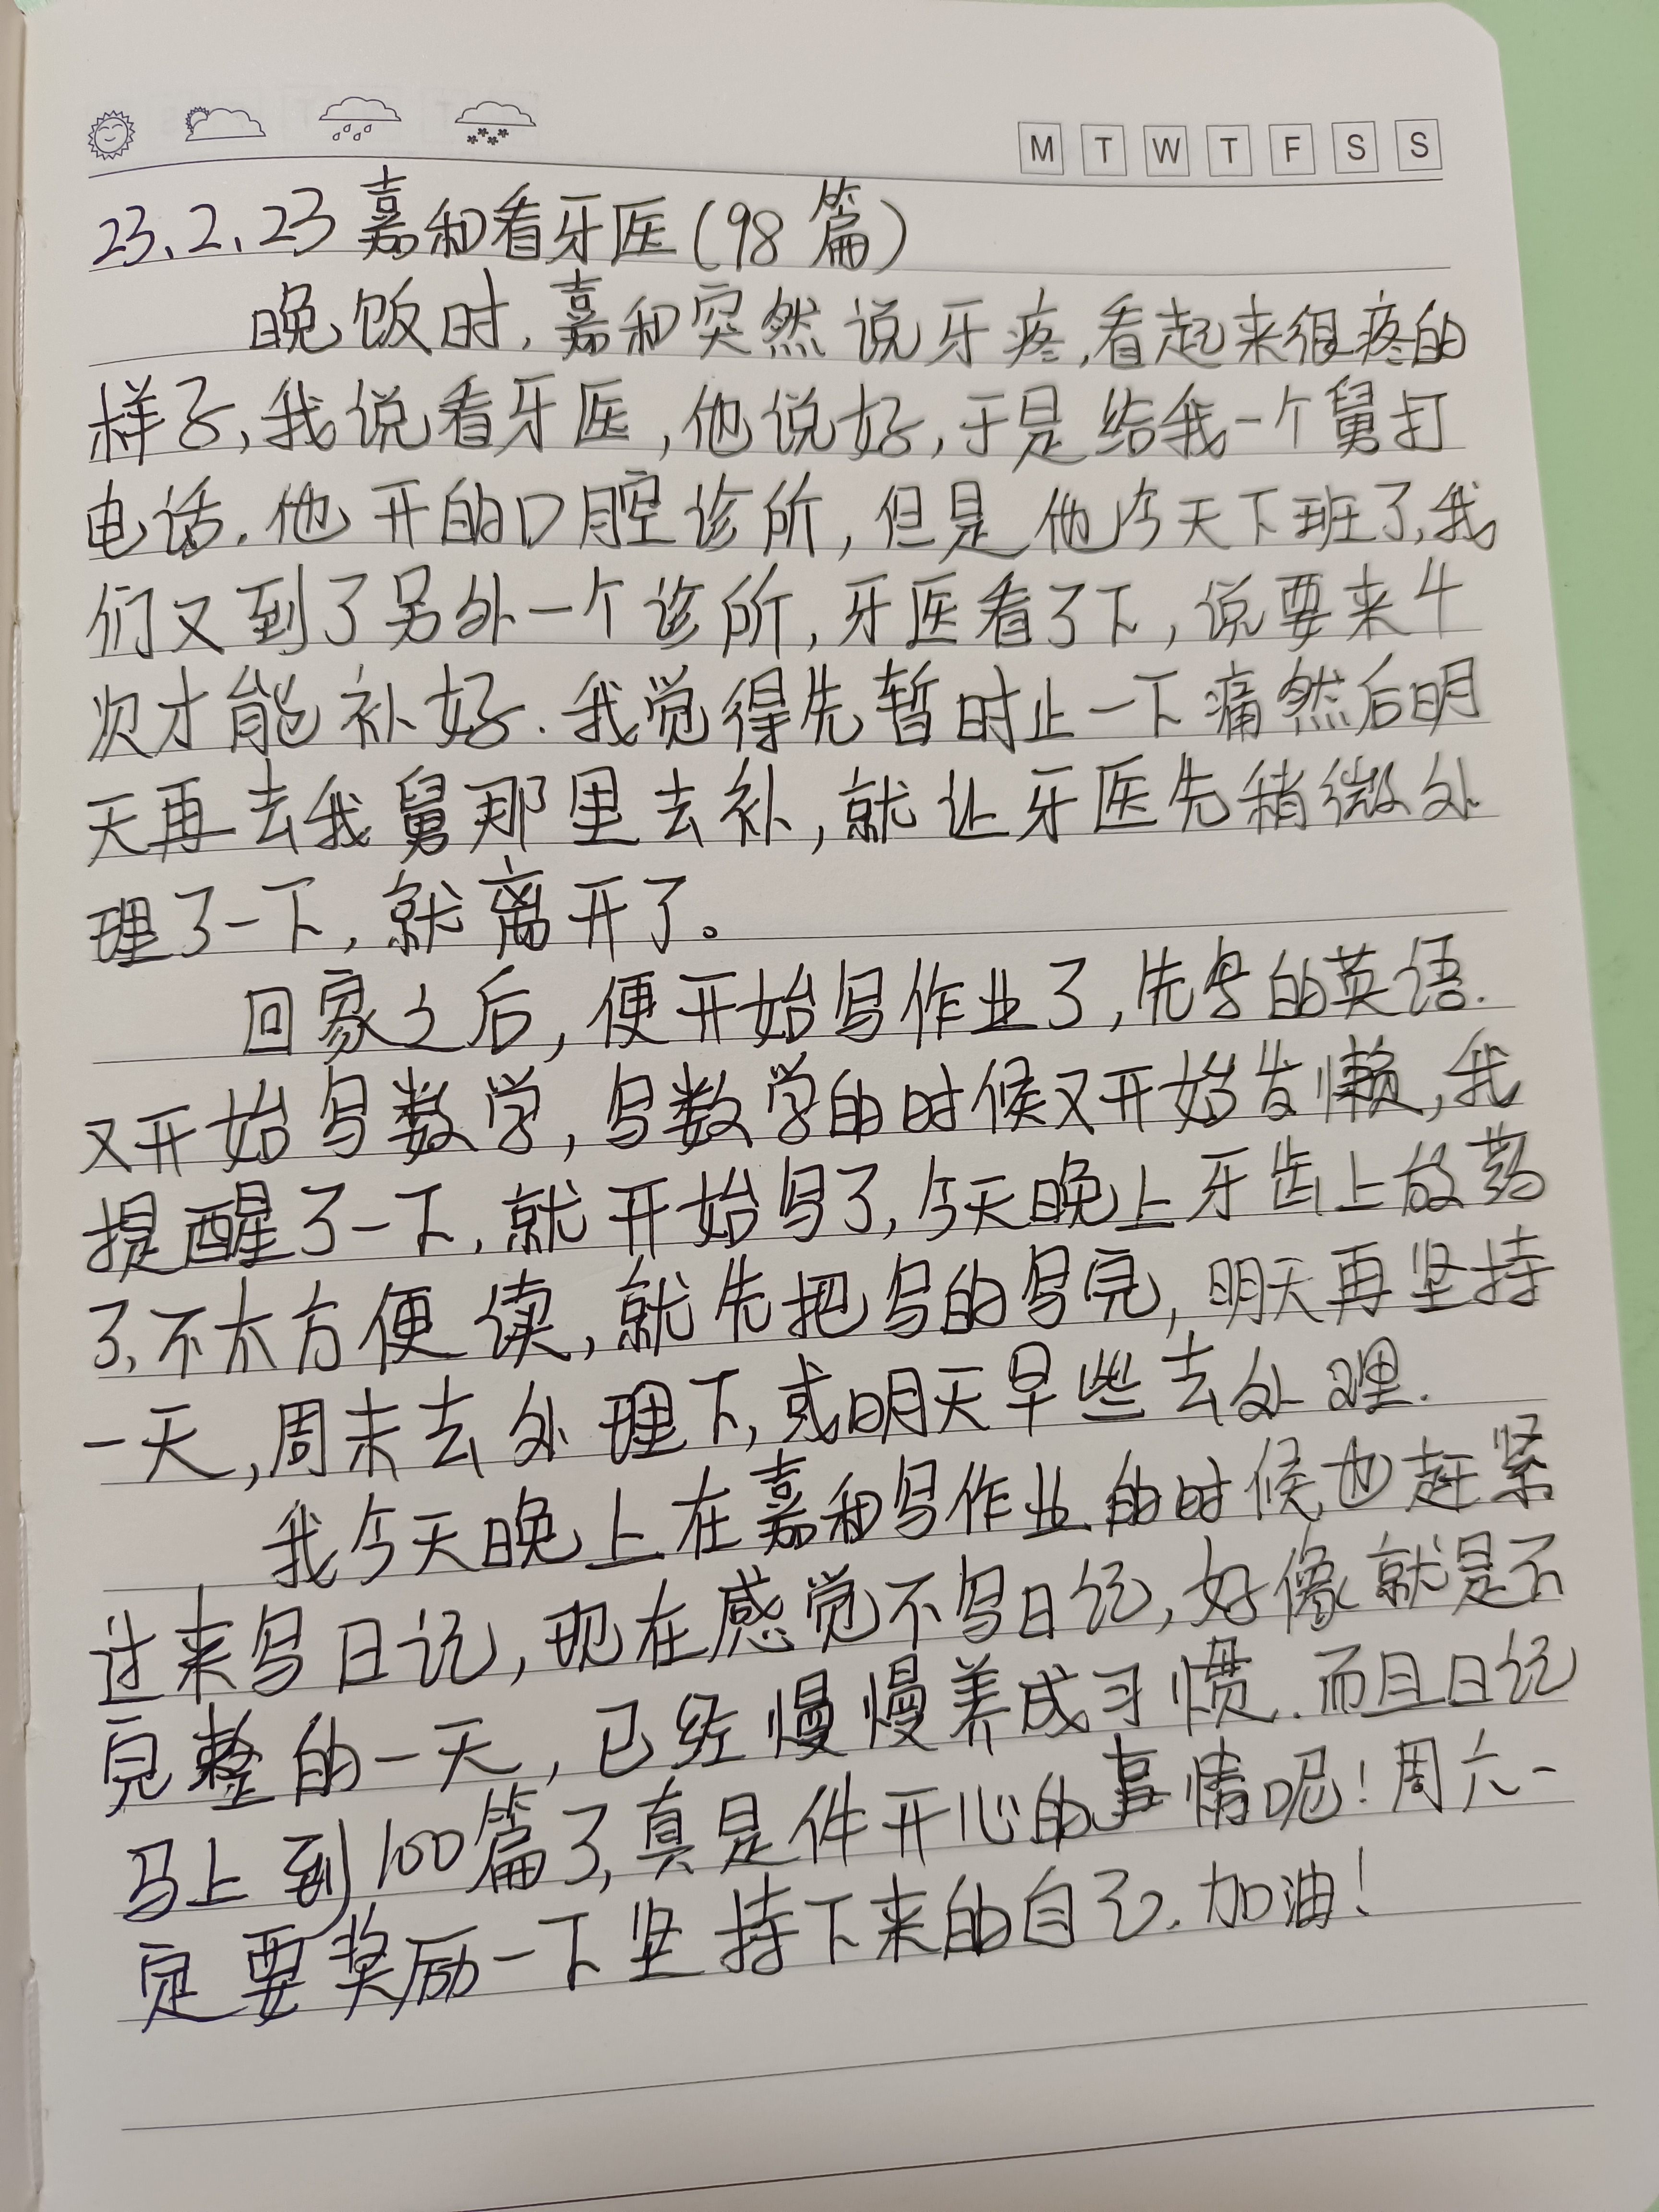 M T W T F S S
23、2、23 嘉和看牙医(98篇)
晚饭时,嘉和突然说牙疼,看起来很疼的
样子,我说看牙医,他说好,于是给我一个舅打
电话.他开的口腔诊所,但是他今天下班了,我
们又到了另外一个诊所,牙医看了下,说要来4
次才能补好.我觉得先暂时止一下痛然后明
天再去我舅那里去补,就让牙医先稍微处
理了一下,就离开了。
回家之后,便开始写作业了,先写的英语.
又开始写数学,写数学的时候又开始发懒,我
提醒了一下,就开始写了,今天晚上牙齿上放药
了,不太方便读,就先把写的写完,明天再坚持
一天,周末去处理下,或明天早些去处理.
我今天晚上在嘉和写作业的时候,也赶紧
过来写日记,现在感觉不写日记,好像就是不
完整的一天,已经慢慢养成习惯.而且日记
马上到100篇了,真是件开心的事情呢!周六一
定要奖励一下坚持下来的自己.加油!